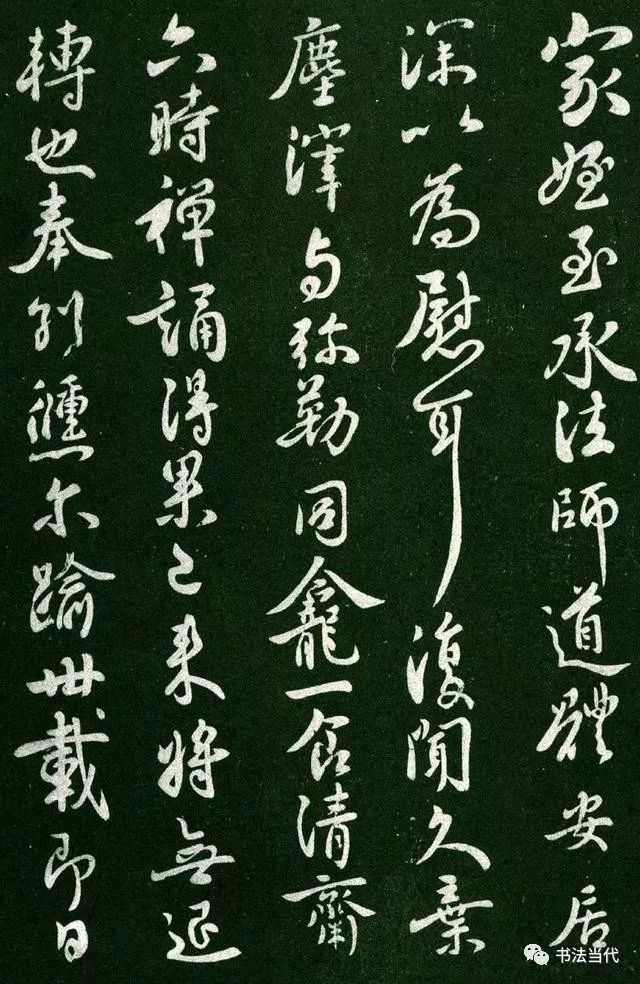 家姪至承法師道體安居
深以為慰耳復聞久棄
塵滓与弥勒同龕一食清齋
六時禪誦得果已來將無退
轉也奉別倏尒踰卌載即日
书法当代